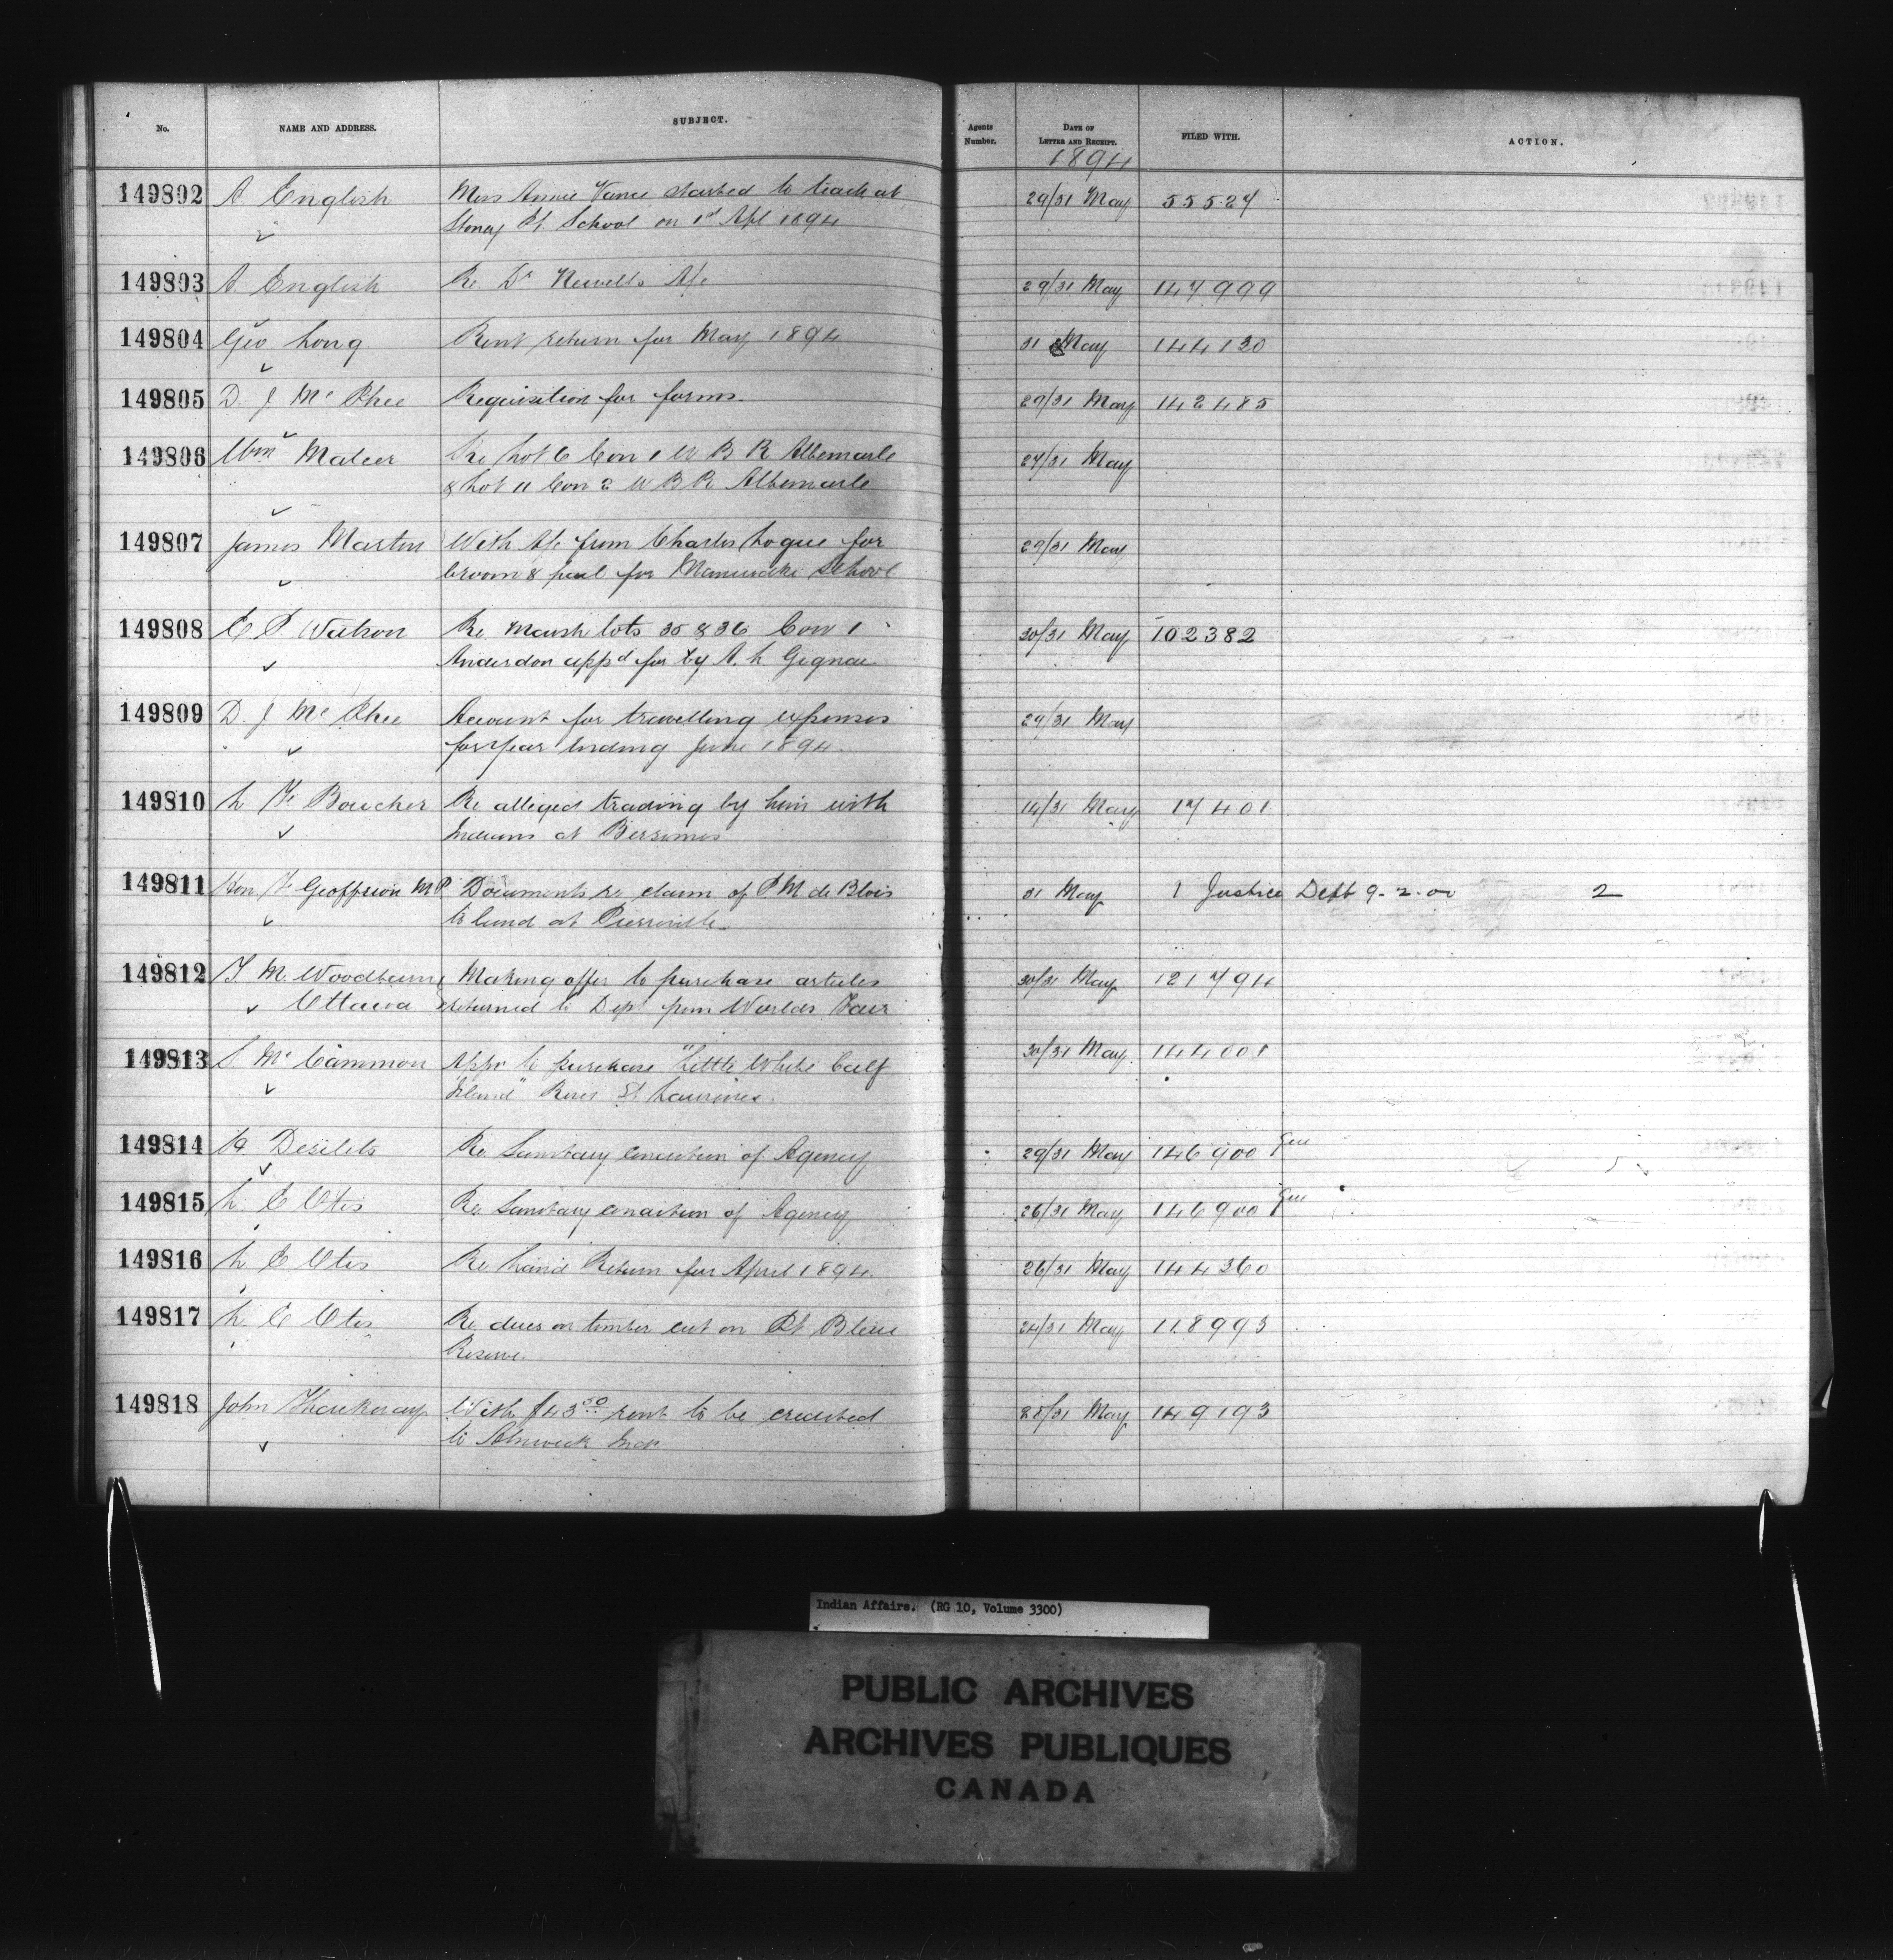 No. NAME AND ADDRESS. SUBJECT. Agents Number. DATE OF LETTER AND RECEIPT. FILED WITH. ACTION.
1894
149802 A. English Miss Annie Vance started to teach at 29/31 May 55527
Stoney Pt. School on 1st Apl 1894
149803 A. English Re Dr Newells A/c 29/31 May 147999
149804 Geo Long Rent return for May 1894 31 May 144130
149805 D. J. Mc Phee Requisition for forms. 29/31 May 142485
149806 Wm Mateer Re Lot 6 Con 1 W B R Albemarle 27/31 May
& Lot 11 Con 2 W B R Albemarle
149807 James Martin With A/c from Charles Logue for 29/31 May
broom & pail for Maniwaki School
149808 E P Watson Re Marsh lots 35 & 36 Con 1 30/31 May 102382
Anderdon appd for by A. L. Gignac
149809 D. J. Mc Phee Account for travelling expenses 29/31 May
for year ending June 1894.
149810 L F Boucher Re alleged trading by him with 14/31 May 17401
Indians at Bersimis
149811 Hon F Geoffrion M P. Documents re claim of P. M. de Blois 31 May 1 Justice Dept 9-2-00 2
to land at
149812 T. M. Woodburn Making offer to purchase articles 30/31 May 121794
Ottawa returned to Dept from Worlds Fair
149813 S Mc Cammon Appn to purchase "Little White Calf 30/31 May. 144001
Island" River St Lawrence.
149814 H. Desilets Re Sanitary condition of Agency 29/31 May 146900 Gen
149815 L. E Otis Re Sanitary condition of Agency 26/31 May 146900 Gen
149816 L. E Otis Re Land Return for April 1894. 26/31 May 144360
149817 L. E Otis Re dues on timber cut on Pt Bleue 24/31 May 118993
Reserve.
149818 John Thackeray With $43.50 rent to be credited 28/31 May 149193
to Alnwick Inds
Indian Affairs. (RG 10, Volume 3300)
PUBLIC ARCHIVES
ARCHIVES PUBLIQUES
CANADA